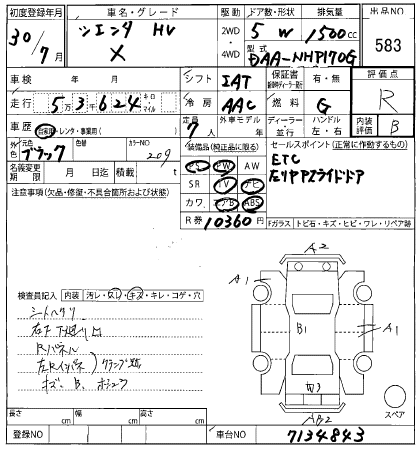 初度登録年月 車名・グレード 駆動 ドア数・形状 排気量 出品NO
30/7月 シエンタ HV X 2WD 4WD 5 W 1500cc 583
型式 DAA-NHP170G
車検 年 月 シフト IAT 保証書 有・無 評価点
走行 5万3千624 キロ・マイル 冷房 AAC 燃料 G R
車歴 自家用・レンタ・事業用( ) 定員 7人 外車モデル 年 ディーラー・並行 ハンドル 左・右 内装評価 B
外色 元色 ブラック 色替 カラーNO 209 装備品(純正品に限る) セールスポイント(正常に動作するもの)
名義変更期限 月 日迄 積載 t PS PW AW ETC
注意事項(欠品・修復・不具合箇所および状態) SR TV ナビ 左リアPスライドドア
カワ エアB ABS
R券 10360円 Fガラス トビ石・キズ・ヒビ・ワレ・リペア跡
A2
検査員記入 内装 汚レ・スレ・キズ・キレ・コゲ・穴 A1
シートヘタリ
B1 A1
Rパネル
左Rインパネ クランプ跡
キズ、B、
AB2 スペア
長さ cm 幅 cm 高さ cm
登録NO 車台NO 7134843